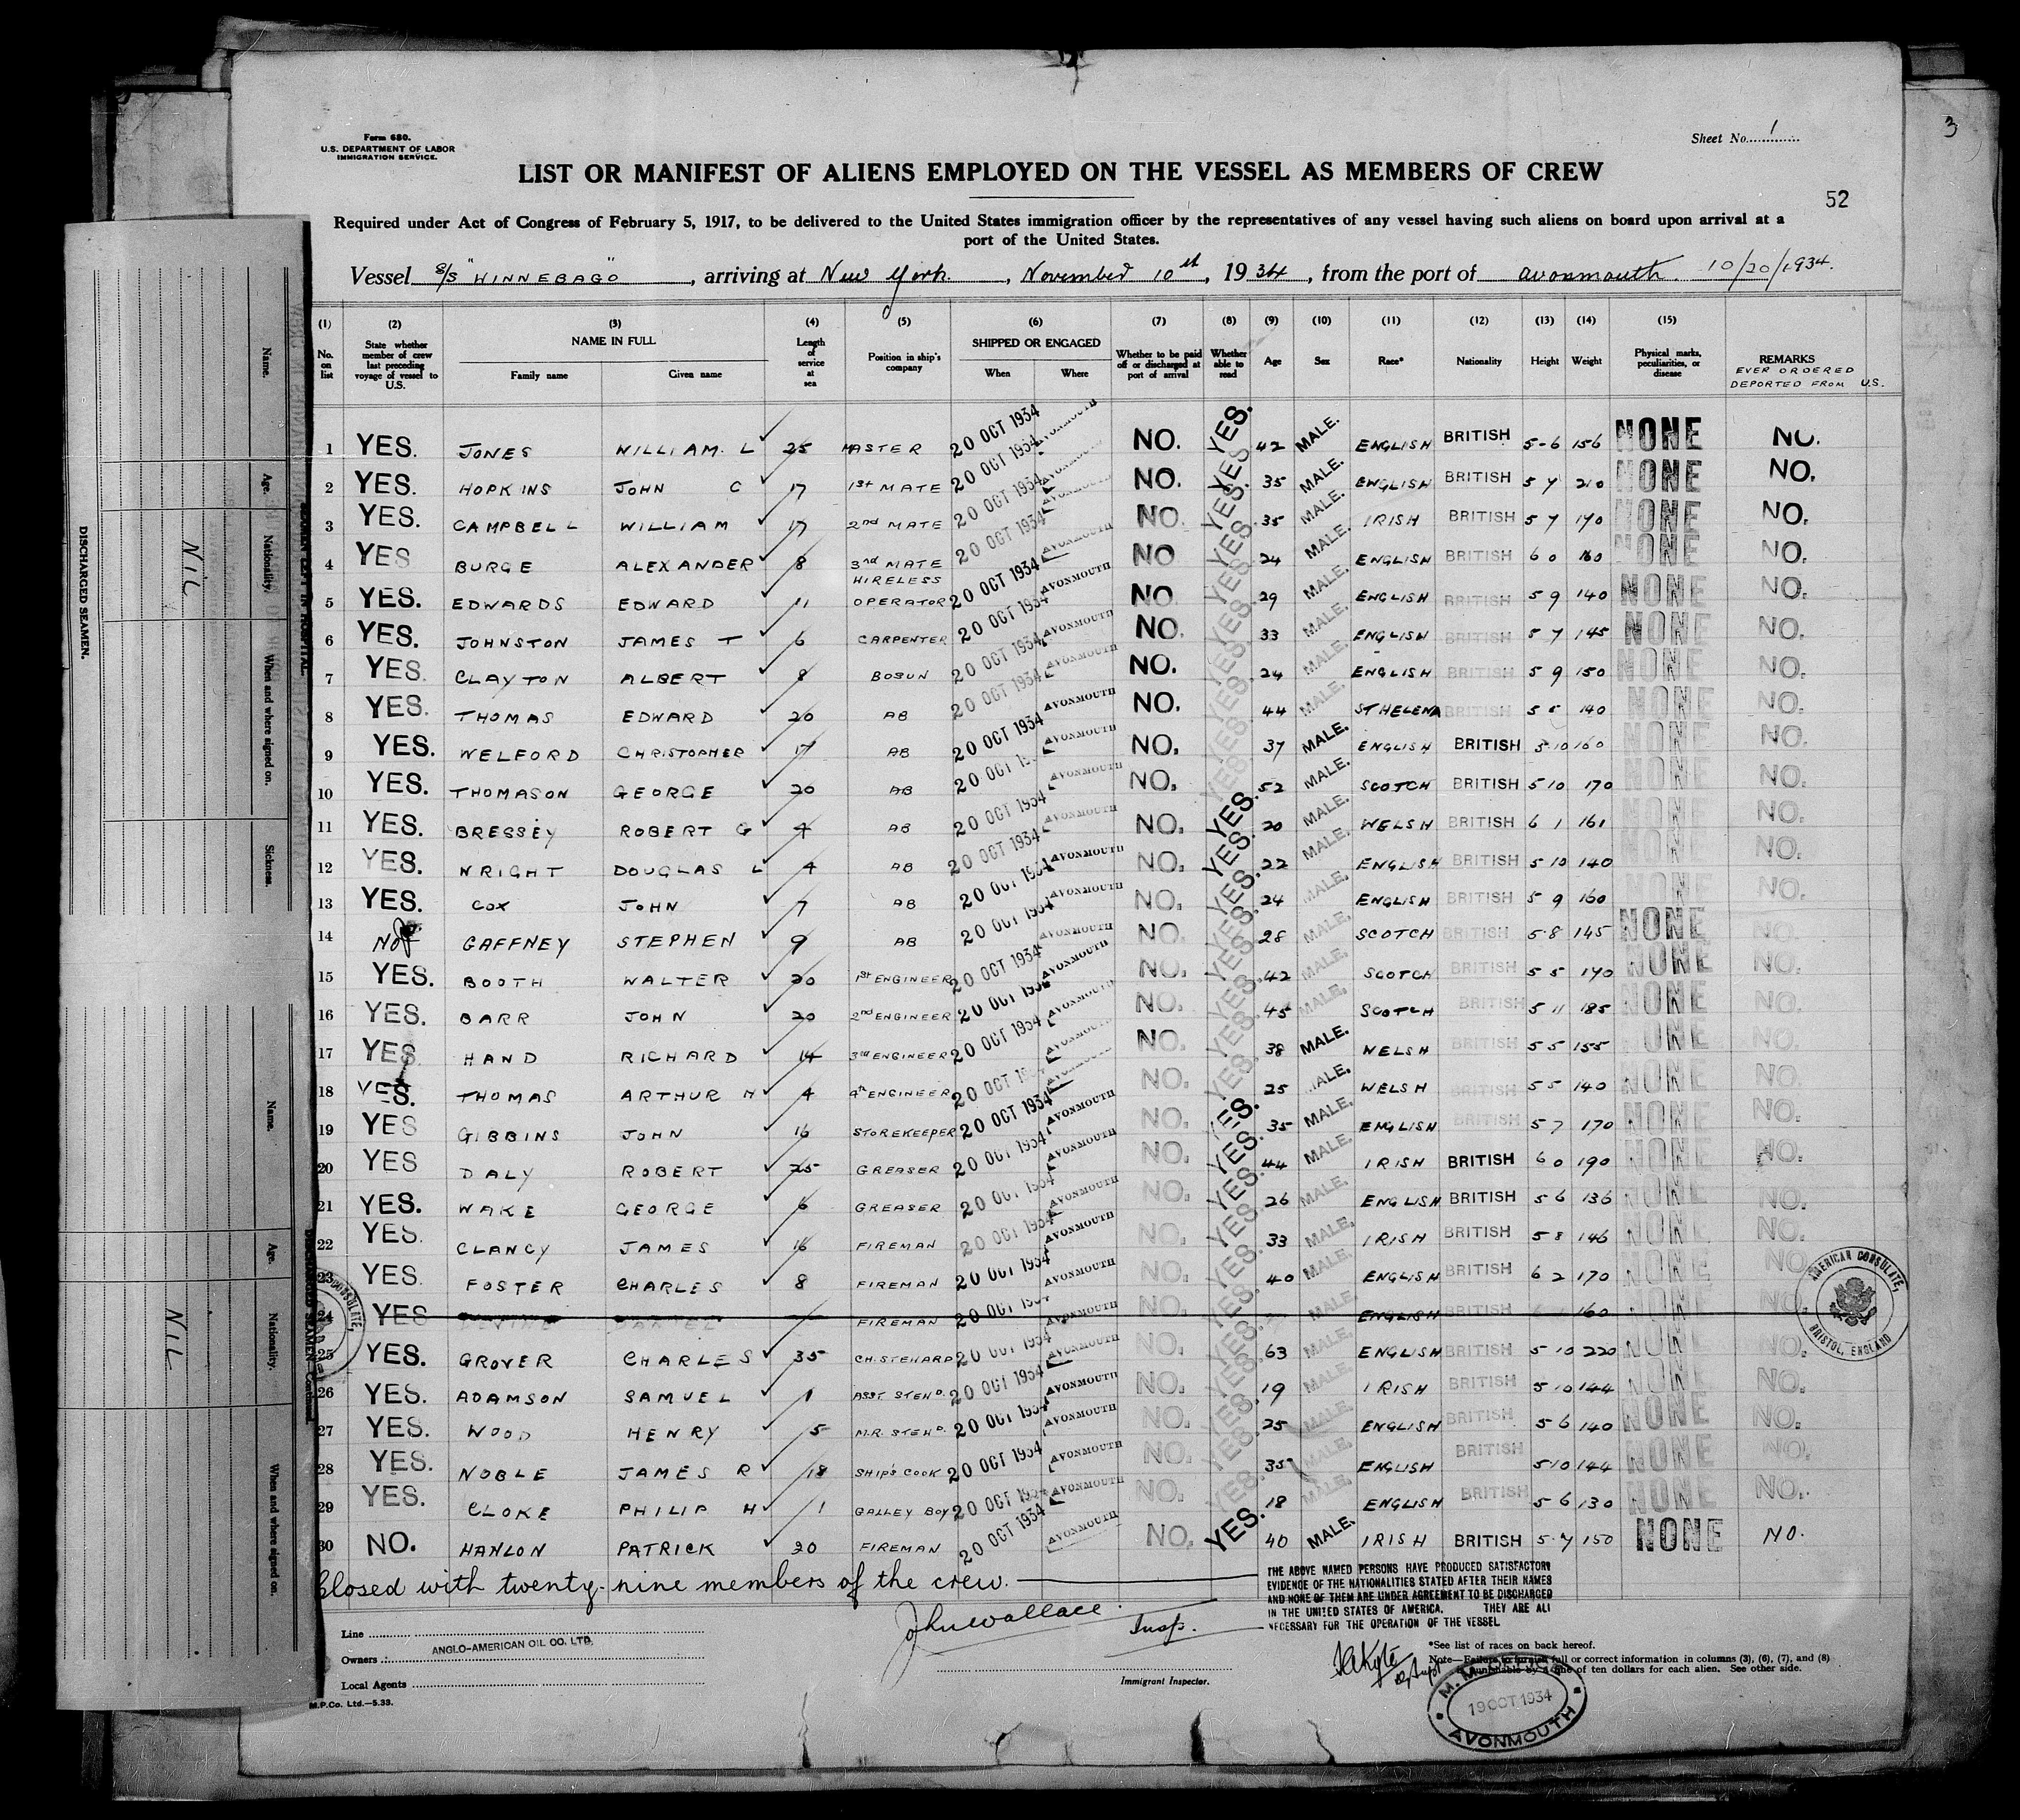 3
Form 680.
U.S. DEPARTMENT OF LABOR
IMMIGRATION SERVICE.
Sheet No. 1
LIST OR MANIFEST OF ALIENS EMPLOYED ON THE VESSEL AS MEMBERS OF CREW
52
Required under Act of Congress of February 5, 1917, to be delivered to the United States immigration officer by the representatives of any vessel having such aliens on board upon arrival at a
port of the United States.
Vessel S/S "WINNEBAGO", arriving at New York., November 10th, 1934, from the port of Avonmouth. 10/20/1934.
(1) (2) (3) (4) (5) (6) (7) (8) (9) (10) (11) (12) (13) (14) (15)
No. on list State whether member of crew last preceding voyage of vessel to U.S. NAME IN FULL Family name Given name Length of service at sea Position in ship's company SHIPPED OR ENGAGED When Where Whether to be paid off or discharged at port of arrival Whether able to read Age Sex Race* Nationality Height Weight Physical marks, peculiarities, or disease REMARKS EVER ORDERED DEPORTED FROM U.S.
1 YES. JONES WILLIAM. L 25 MASTER 20 OCT 1934 AVONMOUTH NO. YES. 42 MALE. ENGLISH BRITISH 5-6 156 NONE NO.
2 YES. HOPKINS JOHN C 17 1st MATE 20 OCT 1934 AVONMOUTH NO. YES. 35 MALE. ENGLISH BRITISH 5 7 210 NONE NO.
3 YES. CAMPBELL WILLIAM 17 2nd MATE 20 OCT 1934 AVONMOUTH NO. YES. 35 MALE. IRISH BRITISH 5 7 170 NONE NO.
4 YES BURGE ALEXANDER 8 3rd MATE 20 OCT 1934 AVONMOUTH NO YES. 24 MALE. ENGLISH BRITISH 6 0 160 NONE NO.
5 YES. EDWARDS EDWARD 11 WIRELESS OPERATOR 20 OCT 1934 AVONMOUTH NO YES. 29 MALE. ENGLISH BRITISH 5 9 140 NONE NO.
6 YES. JOHNSTON JAMES T 6 CARPENTER 20 OCT 1934 AVONMOUTH NO. YES. 33 MALE. ENGLISH BRITISH 5 7 145 NONE NO.
7 YES. CLAYTON ALBERT 8 BOSUN 20 OCT 1934 AVONMOUTH NO. YES. 24 MALE. ENGLISH BRITISH 5 9 150 NONE NO.
8 YES. THOMAS EDWARD 20 AB 20 OCT 1934 AVONMOUTH NO. YES. 44 MALE. ST HELENA BRITISH 5 5 140 NONE NO.
9 YES. WELFORD CHRISTOPHER 17 AB 20 OCT 1934 AVONMOUTH NO. YES. 37 MALE. ENGLISH BRITISH 5 10 160 NONE NO.
10 YES. THOMASON GEORGE 20 AB 20 OCT AVONMOUTH NO. YES. 52 MALE. SCOTCH BRITISH 5 10 170 NONE NO.
11 YES. BRESSEY ROBERT G 4 AB 20 OCT 1934 AVONMOUTH NO. YES. 20 MALE. WELSH BRITISH 6 1 161 NONE NO.
12 YES. WRIGHT DOUGLAS L 4 AB 20 OCT 1934 AVONMOUTH NO. YES. 22 MALE. ENGLISH BRITISH 5 10 140 NONE NO.
13 YES. COX JOHN 7 AB 20 OCT 1934 AVONMOUTH NO. YES. 24 MALE. ENGLISH BRITISH 5 9 160 NONE NO.
14 NO GAFFNEY STEPHEN 9 AB 20 OCT 1934 AVONMOUTH NO. YES. 28 MALE. SCOTCH BRITISH 5 8 145 NONE NO.
15 YES. BOOTH WALTER 20 1st ENGINEER 20 OCT 1934 AVONMOUTH NO. YES. 42 MALE. SCOTCH BRITISH 5 5 170 NONE NO.
16 YES. BARR JOHN 20 2nd ENGINEER 20 OCT 1934 AVONMOUTH NO. YES. 45 MALE. SCOTCH BRITISH 5 11 185 NONE NO.
17 YES. HAND RICHARD 14 3rd ENGINEER 20 OCT 1934 AVONMOUTH NO. YES. 38 MALE. WELSH BRITISH 5 5 155 NONE NO.
18 YES. THOMAS ARTHUR H 4 4th ENGINEER 20 OCT AVONMOUTH NO. YES. 25 MALE. WELSH BRITISH 5 5 140 NONE NO.
19 YES GIBBINS JOHN 16 STOREKEEPER 20 OCT 1934 AVONMOUTH NO. YES. 35 MALE. ENGLISH BRITISH 5 7 170 NONE NO.
20 YES DALY ROBERT 25 GREASER 20 OCT 1934 AVONMOUTH NO. YES. 44 MALE. IRISH BRITISH 6 0 190 NONE NO.
21 YES. WAKE GEORGE 6 GREASER 20 OCT 1934 AVONMOUTH NO. YES. 26 MALE. ENGLISH BRITISH 5 6 136 NONE NO.
22 YES. CLANCY JAMES 16 FIREMAN 20 OCT 1934 AVONMOUTH NO. YES. 33 MALE. IRISH BRITISH 5 8 146 NONE NO.
23 YES. FOSTER CHARLES 8 FIREMAN 20 OCT 1934 AVONMOUTH NO. YES. 40 MALE. ENGLISH BRITISH 6 2 170 NONE NO.
24 YES FIREMAN 20 OCT AVONMOUTH NO. YES. MALE. ENGLISH BRITISH 160 NONE NO.
25 YES. GROVER CHARLES 35 CH. STEWARD 20 OCT 1934 AVONMOUTH NO. YES. 63 MALE. ENGLISH BRITISH 5 10 220 NONE NO.
26 YES. ADAMSON SAMUEL 1 ASST. STEWD. 20 OCT 1934 AVONMOUTH NO. YES. 19 MALE. IRISH BRITISH 5 10 144 NONE NO.
27 YES. WOOD HENRY 5 M.R. STEWD. 20 OCT 1934 AVONMOUTH NO. YES. 25 MALE. ENGLISH BRITISH 5 6 140 NONE NO.
28 YES. NOBLE JAMES R 18 SHIP'S COOK 20 OCT 1934 AVONMOUTH NO. YES. 35 MALE. ENGLISH BRITISH 5 10 144 NONE NO.
29 YES. CLOKE PHILIP H 1 GALLEY BOY 20 OCT 1934 AVONMOUTH NO. YES. 18 MALE. ENGLISH BRITISH 5 6 130 NONE NO.
30 NO. HANLON PATRICK 20 FIREMAN 20 OCT 1934 AVONMOUTH NO. YES. 40 MALE. IRISH BRITISH 5 7 150 NONE NO.
Closed with twenty-nine members of the crew.
THE ABOVE NAMED PERSONS HAVE PRODUCED SATISFACTORY
EVIDENCE OF THE NATIONALITIES STATED AFTER THEIR NAMES
AND NONE OF THEM ARE UNDER AGREEMENT TO BE DISCHARGED
IN THE UNITED STATES OF AMERICA. THEY ARE ALL
NECESSARY FOR THE OPERATION OF THE VESSEL
John Wallace. Insp.
Immigrant Inspector.
Line
Owners ANGLO-AMERICAN OIL CO. LTD.
Local Agents
M.P.Co. Ltd.—5.33.
*See list of races on back hereof.
Note—Failure to furnish full or correct information in columns (3), (6), (7), and (8)
is punishable by a fine of ten dollars for each alien. See other side.
19 OCT 1934
AVONMOUTH
AMERICAN CONSULATE,
BRISTOL, ENGLAND
CONSULATE,
DISCHARGED SEAMEN.
Name. Age. Nationality. When and where signed on. Sickness.
NIL
SEAMEN LEFT IN HOSPITAL.
Name. Age. Nationality. When and where signed on.
NIL
DISCHARGED SEAMEN—Continued.